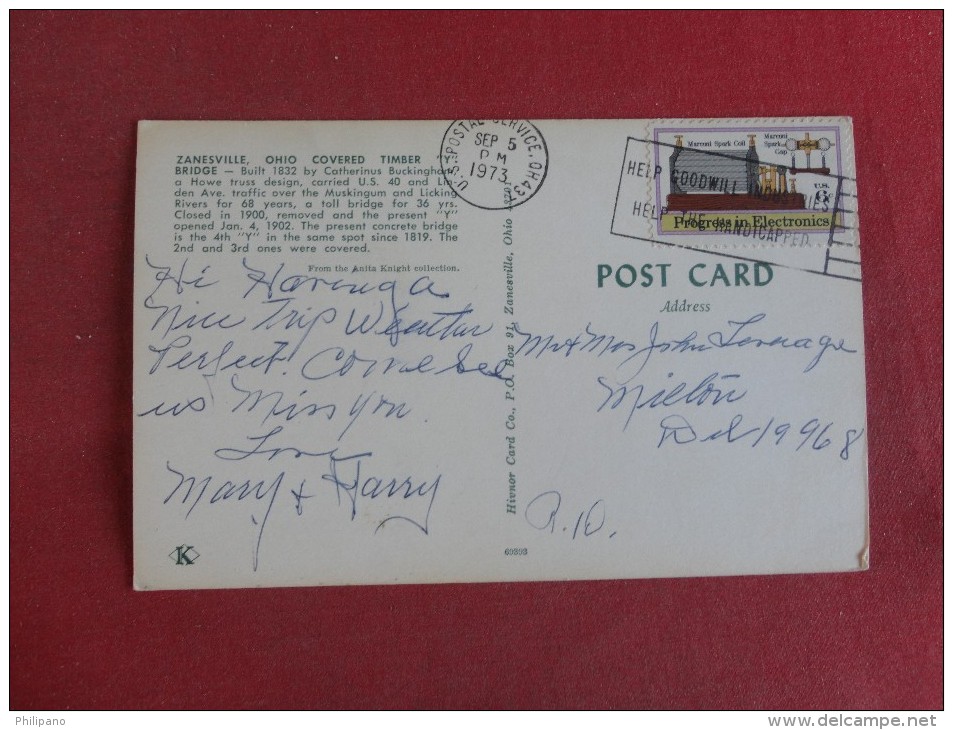 ZANESVILLE, OHIO COVERED TIMBER
BRIDGE — Built 1832 by Catherinus Buckingham,
a Howe truss design, carried U.S. 40 and Lin-
den Ave. traffic over the Muskingum and Licking
Rivers for 68 years, a toll bridge for 36 yrs.
Closed in 1900, removed and the present "Y"
opened Jan. 4, 1902. The present concrete bridge
is the 4th "Y" in the same spot since 1819. The
2nd and 3rd ones were covered.
From the Anita Knight collection.
Hi Having a
Nice Trip Weather
Perfect. Come See
us Miss you.
Love
Mary & Harry
K
Hivnor Card Co., P.O. Box 91, Zanesville, Ohio 43701
60393
U.S. POSTAL SERVICE, OH 43
SEP 5
PM
1973
Marconi Spark Coil
Marconi Spark Gap
U.S. 6¢
Progress in Electronics
HELP GOODWILL INDUSTRIES
HELP THE HANDICAPPED
POST CARD
Address
Mr & Mrs John
Milton
Del 19968
R.D.
Philipano
www.delcampe.net